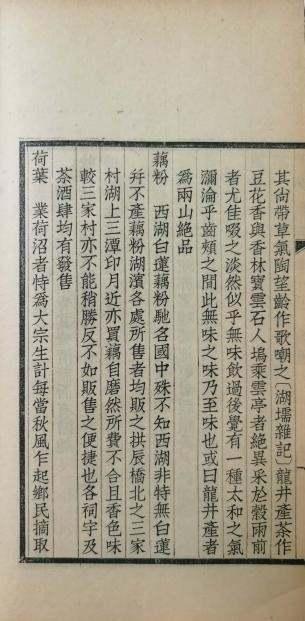 其尙帶草氣陶望齡作歌嘲之〔湖壖雜記〕龍井產茶作
豆花香與香林寶雲石人塢乘雲亭者絕異采於穀雨前
者尤佳啜之淡然似乎無味飲過後覺有一種太和之氣
瀰淪乎齒頰之間此無味之味乃至味也或曰龍井產者
爲兩山絕品
藕粉　西湖白蓮藕粉馳名國中殊不知西湖非特無白蓮
幷不產藕粉湖濱各處所售者均販之拱辰橋北之三家
村湖上三潭印月近亦買藕自磨然所費不合且香色味
較三家村亦不能稍勝反不如販售之便捷也各祠宇及
茶酒肆均有發售
荷葉　業荷沼者恃爲大宗生計每當秋風乍起鄉民摘取